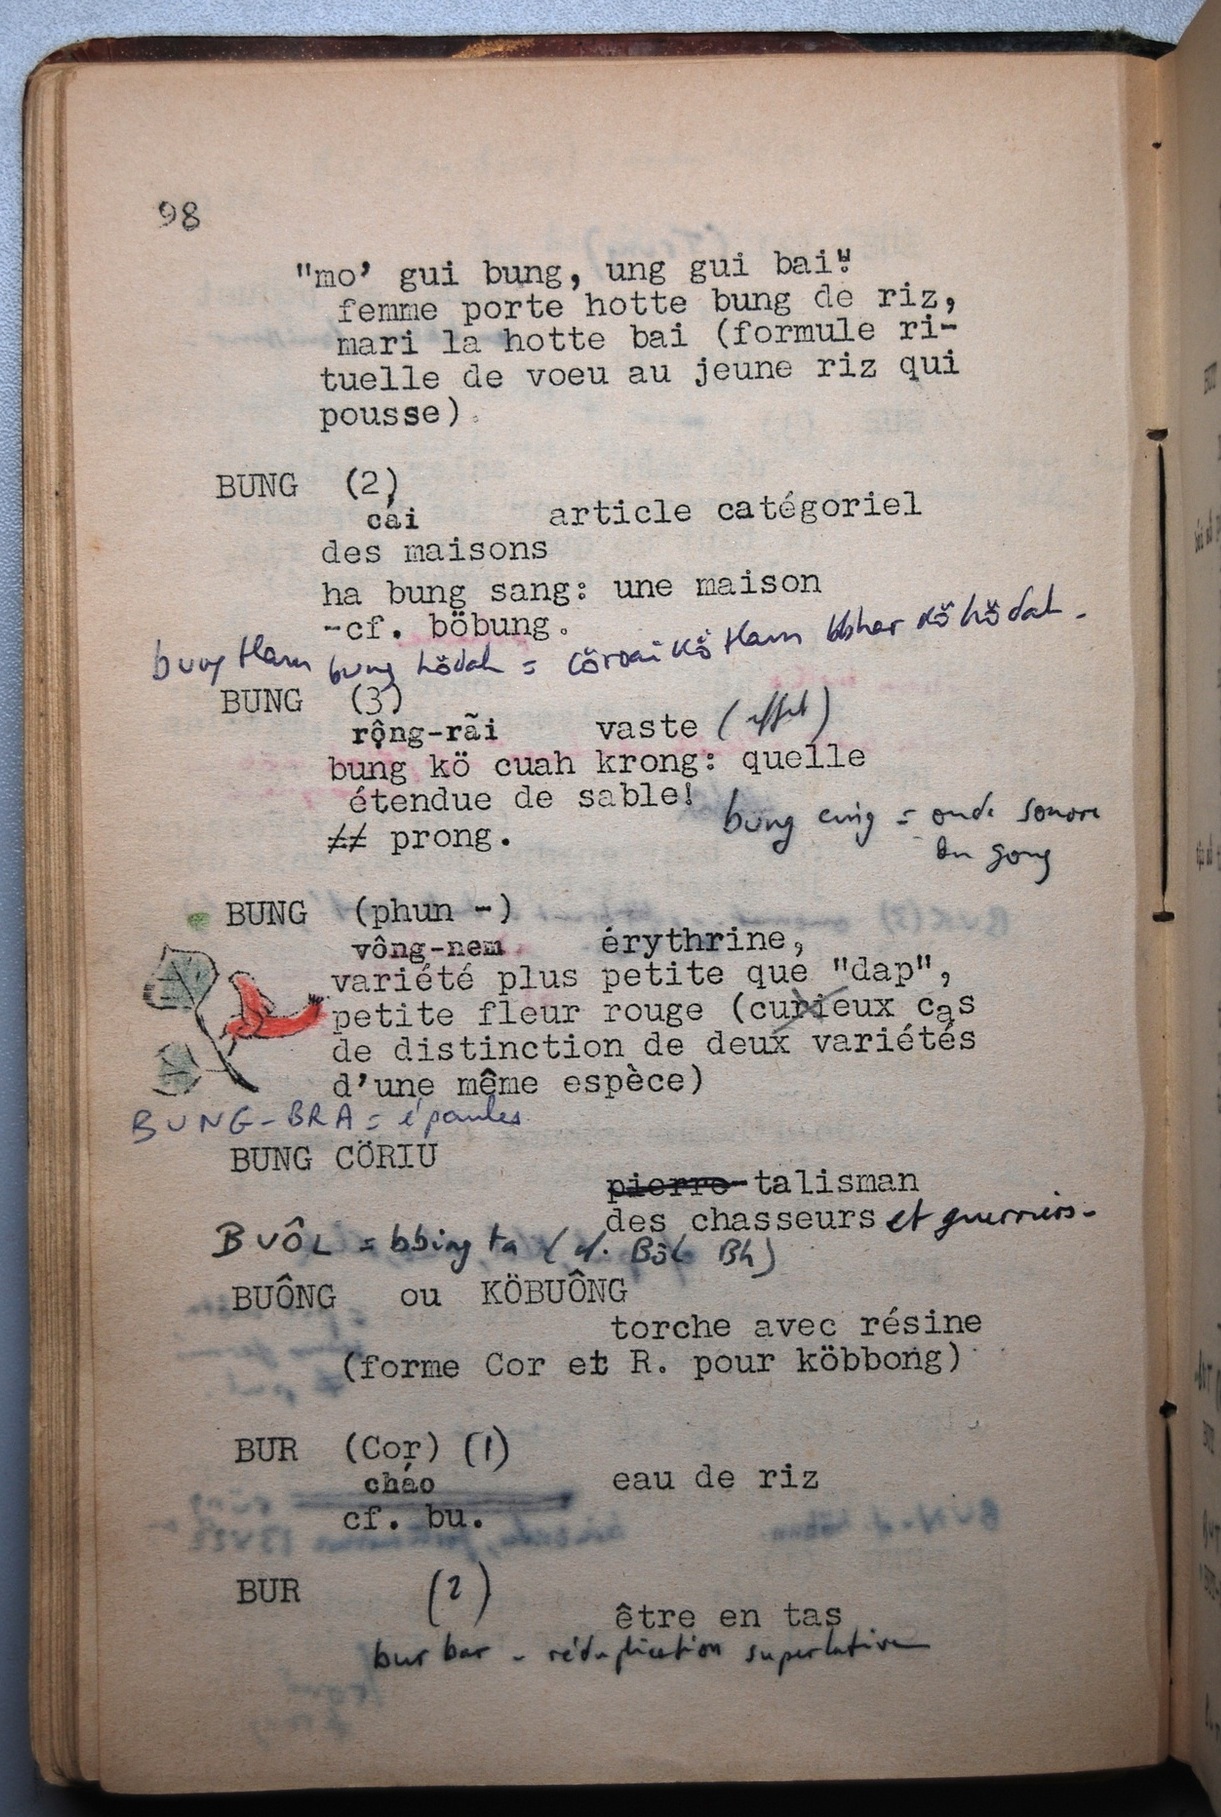 98
"mo' gui bung, ung gui bai"!
femme porte hotte bung de riz,
mari la hotte bai (formule ri-
tuelle de voeu au jeune riz qui
pousse).
BUNG (2)
cái article catégoriel
des maisons
ha bung sang: une maison
-cf. böbung.
bung tlam bung hödah =
BUNG (3)
rộng-rãi vaste (effet)
bung kö cuah krong: quelle
étendue de sable!
≠≠ prong.
bung cing = onde sonore
du gong
BUNG (phun -)
vông-nem érythrine,
variété plus petite que "dap",
petite fleur rouge (curieux cas
de distinction de deux variétés
d'une même espèce)
BUNG-BRA = épaules
BUNG CÖRIU
pierre talisman
des chasseurs et guerriers-
BUÔL = bbing ta (cf. Böl Bh)
BUÔNG ou KÖBUÔNG
torche avec résine
(forme Cor et R. pour köbbong)
BUR (Cor) (1)
cháo eau de riz
cf. bu.
BUR (2)
être en tas
bur bar - réduplication superlative